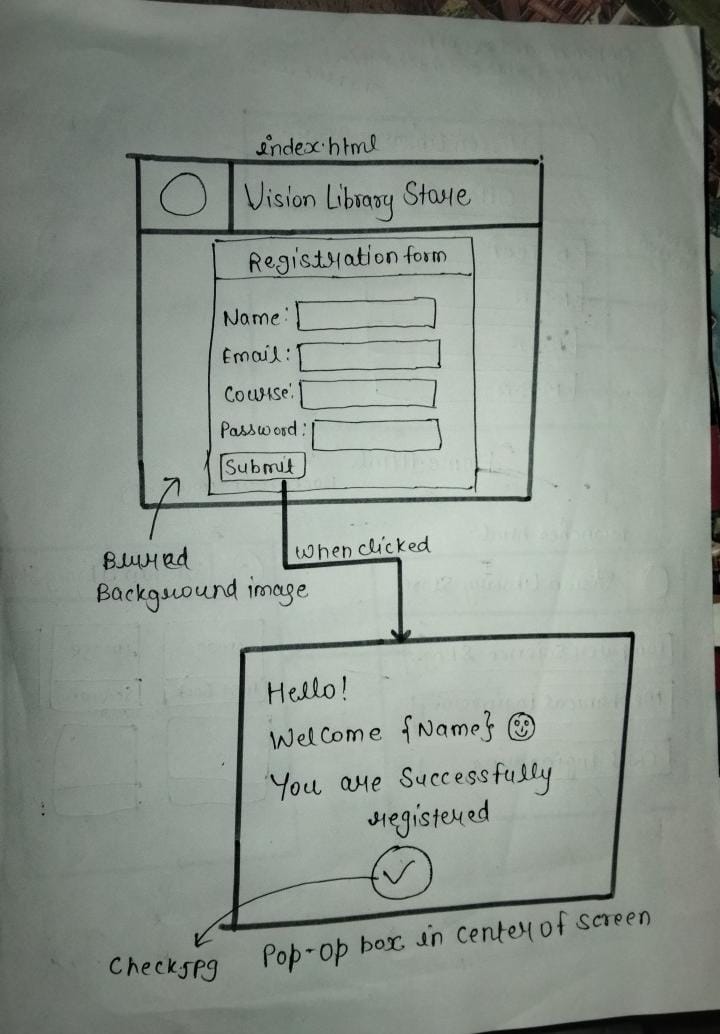 index.html
Vision Library Store
Registration form
Name:
Email:
Course:
Password:
Submit
when clicked
Blurred
Background image
Hello!
Welcome {Name}
You are Successfully
registered
Check.jpg
Pop-Op box in center of screen